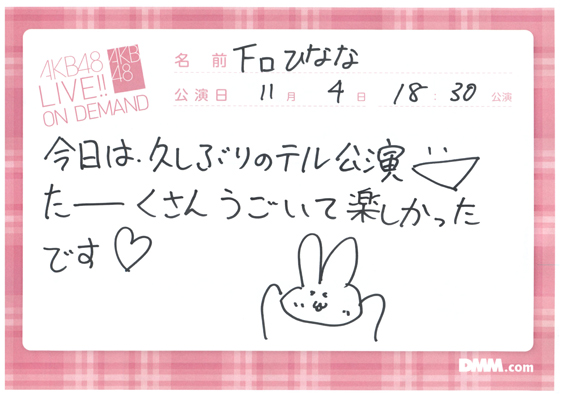 AKB48
LIVE!!
ON DEMAND
AKB
48
名前 下口ひなな
公演日 11月 4日 18:30 公演
今日は、久しぶりのテル公演
たーーくさんうごいて楽しかった
です♡
DMM.com